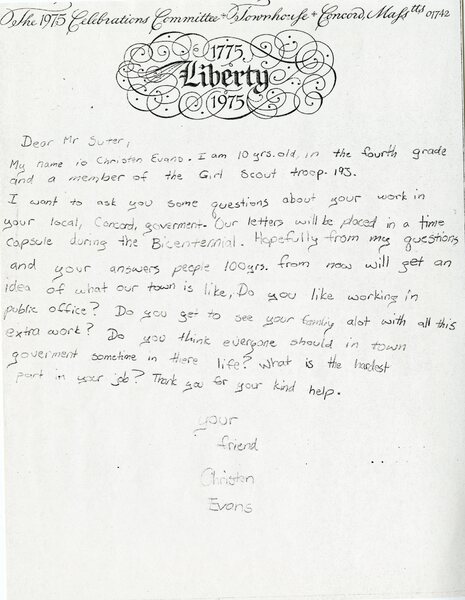 The 1975 Celebrations Committee + Townhouse + Concord, Mass tts 01742
1775
Liberty
1975
Dear Mr Suter,
My name is Christen Evans. I am 10 yrs. old, in the fourth grade
and a member of the Girl Scout troop. 193.
I want to ask you some questions about your work in
your local, Concord, goverment. Our letters will be placed in a time
capsule during the Bicentennial. Hopefully from my questions
and your answers people 100yrs. from now will get an
idea of what our town is like, Do you like working in
public office? Do you get to see your family alot with all this
extra work? Do you think everyone should in town
goverment sometime in there life? What is the hardest
part in your job? Thank you for your kind help.
your
friend
Christen
Evans